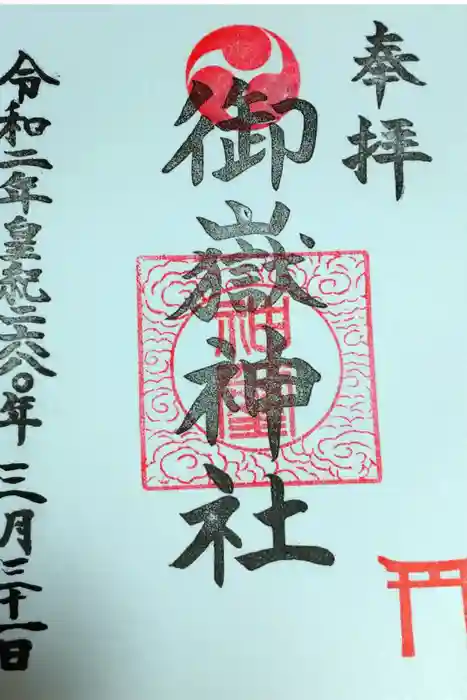 奉拝
御嶽神社
令和二年皇紀二六八〇年三月三十一日